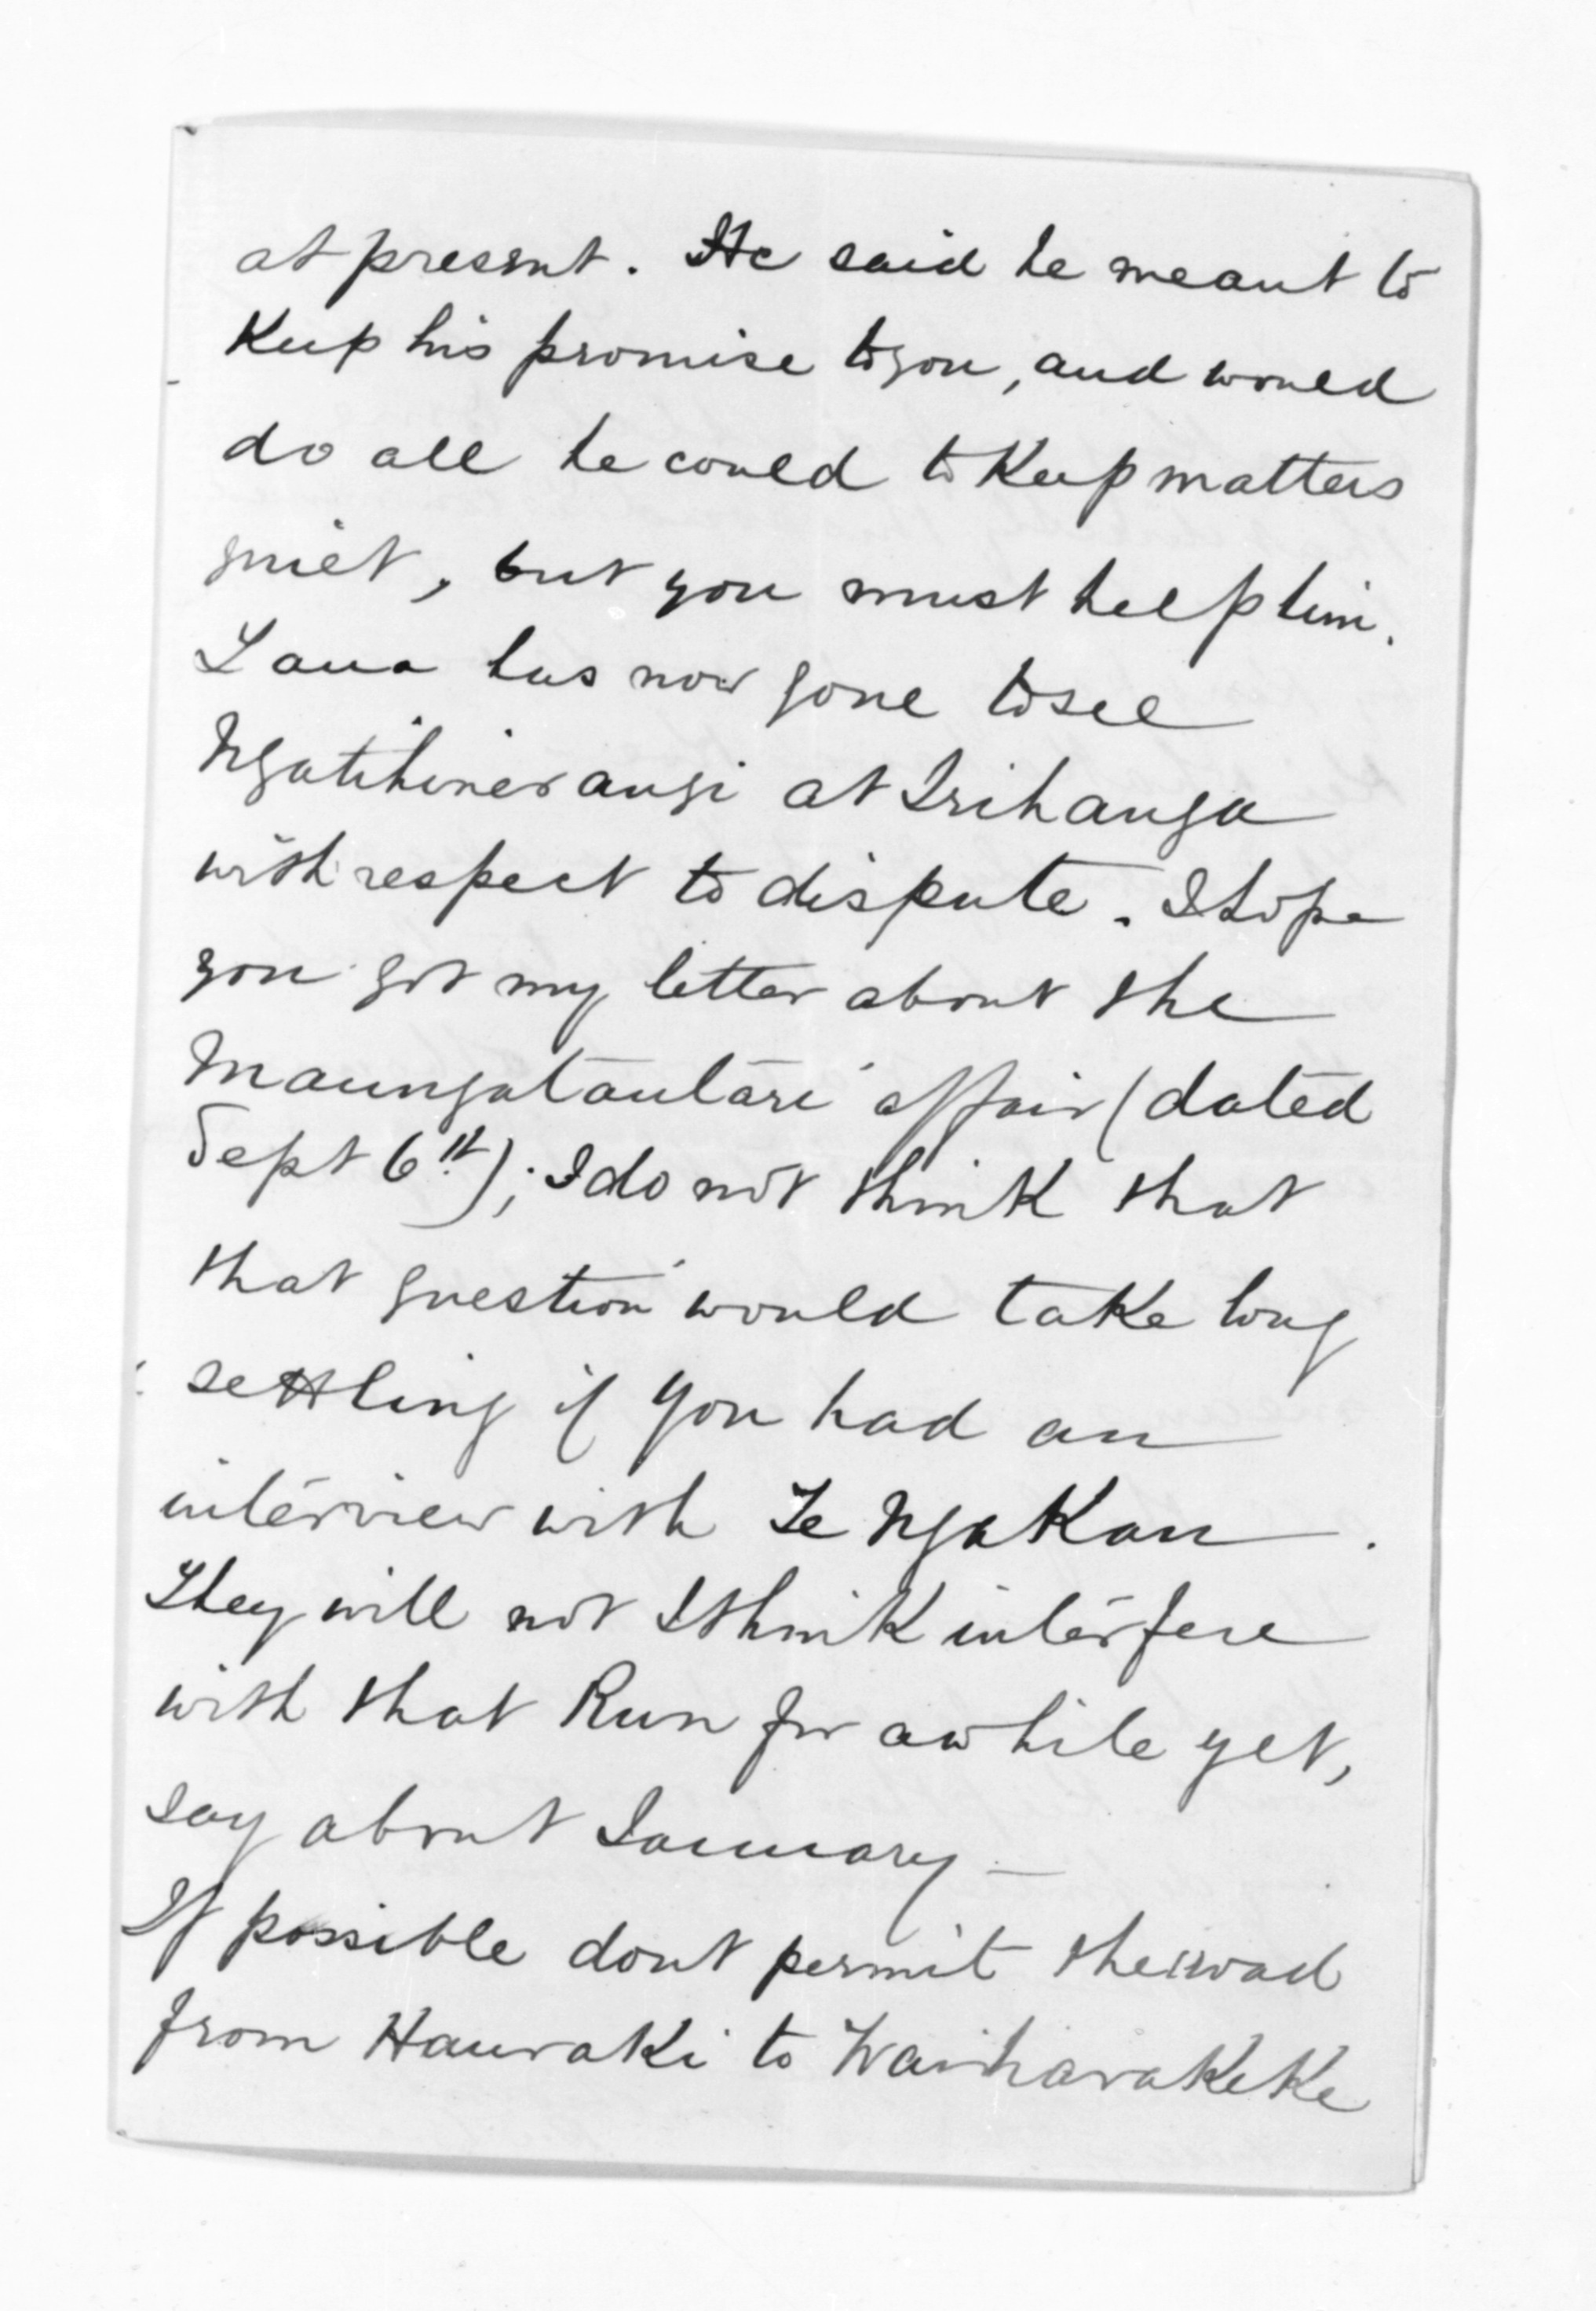 at present. He said he meant to
Keep his promise to you, and would
do all he could to Keep matters
quiet, but you must help him.
Tana has now gone to see
Ngatihinerangi at Irihanga
with respect to dispute. I hope
you got my letter about the
Maungatautari affair (dated
Sept 6th); I do not think that
that question would take long
settling if you had an
interview with Te Ngakau.
They will not I think interfere
with that Run for awhile yet,
say about January –
If possible dont permit the road
from Hauraki to Waiharakeke